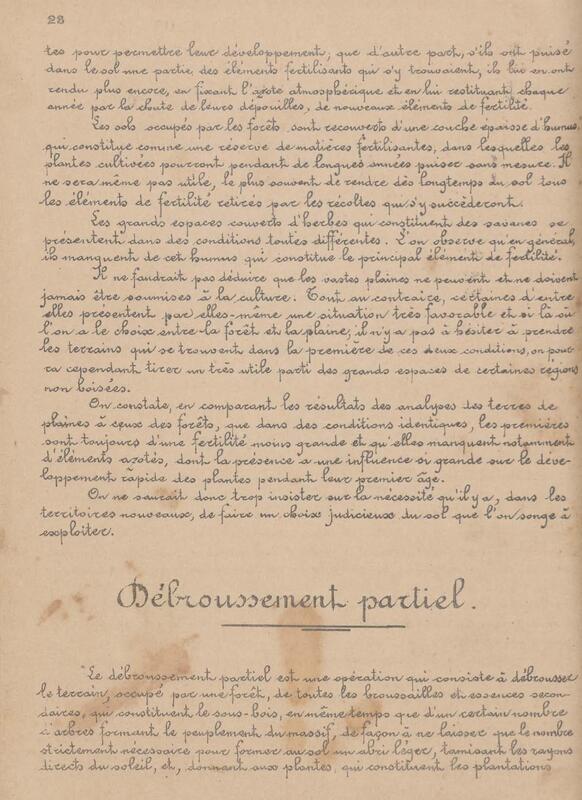 28
tes pour permettre leur développement; que d'autre part, s'ils ont puisé
dans le sol une partie, des éléments fertilisants qui s'y trouvaient, ils lui en ont
rendu plus encore, en fixant l'azote atmosphérique et en lui restituant chaque
année par la chute de leurs dépouilles, de nouveaux éléments de fertilité.
Les sols occupés par les forêts, sont recouverts d'une couche épaisse d'humus
qui constitue comme une réserve de matières fertilisantes, dans lesquelles les
plantes cultivées pourront pendant de longues années puiser sans mesure. Il
ne sera même pas utile, le plus souvent de rendre dès longtemps au sol tous
les éléments de fertilité retirés par les récoltes qui s'y succèderont.
Les grands espaces couverts d'herbes qui constituent des savanes se
présentent dans des conditions toutes différentes. L'on observe qu'en général,
ils manquent de cet humus qui constitue le principal élément de fertilité.
Il ne faudrait pas déduire que les vastes plaines ne peuvent et ne doivent
jamais être soumises à la culture. Tout au contraire, certaines d'entre
elles présentent par elles-même une situation très favorable et si là où
l'on a le choix entre la forêt et la plaine, il n'y a pas à hésiter à prendre
les terrains qui se trouvent dans la première de ces deux conditions, on pour-
ra cependant tirer un très utile parti des grands espaces de certaines régions
non boisées.
On constate, en comparant les résultats des analyses des terres de
plaines à ceux des forêts, que dans des conditions identiques, les premières
sont toujours d'une fertilité moins grande et qu'elles manquent notamment
d'éléments azotés, dont la présence a une influence si grande sur le déve-
loppement rapide des plantes pendant leur premier âge.
On ne saurait donc trop insister sur la nécessité qu'il y a, dans les
territoires nouveaux, de faire un choix judicieux du sol que l'on songe à
exploiter.
Débroussement partiel.
Le débroussement partiel est une opération qui consiste à débrousser
le terrain, occupé par une forêt, de toutes les broussailles et essences secon-
daires, qui constituent le sous-bois, en même temps que d'un certain nombre
d'arbres formant le peuplement du massif, de façon à ne laisser que le nombre
strictement nécessaire pour former au sol un abri léger, tamisant les rayons
directs du soleil, et, donnant aux plantes, qui constituent les plantations